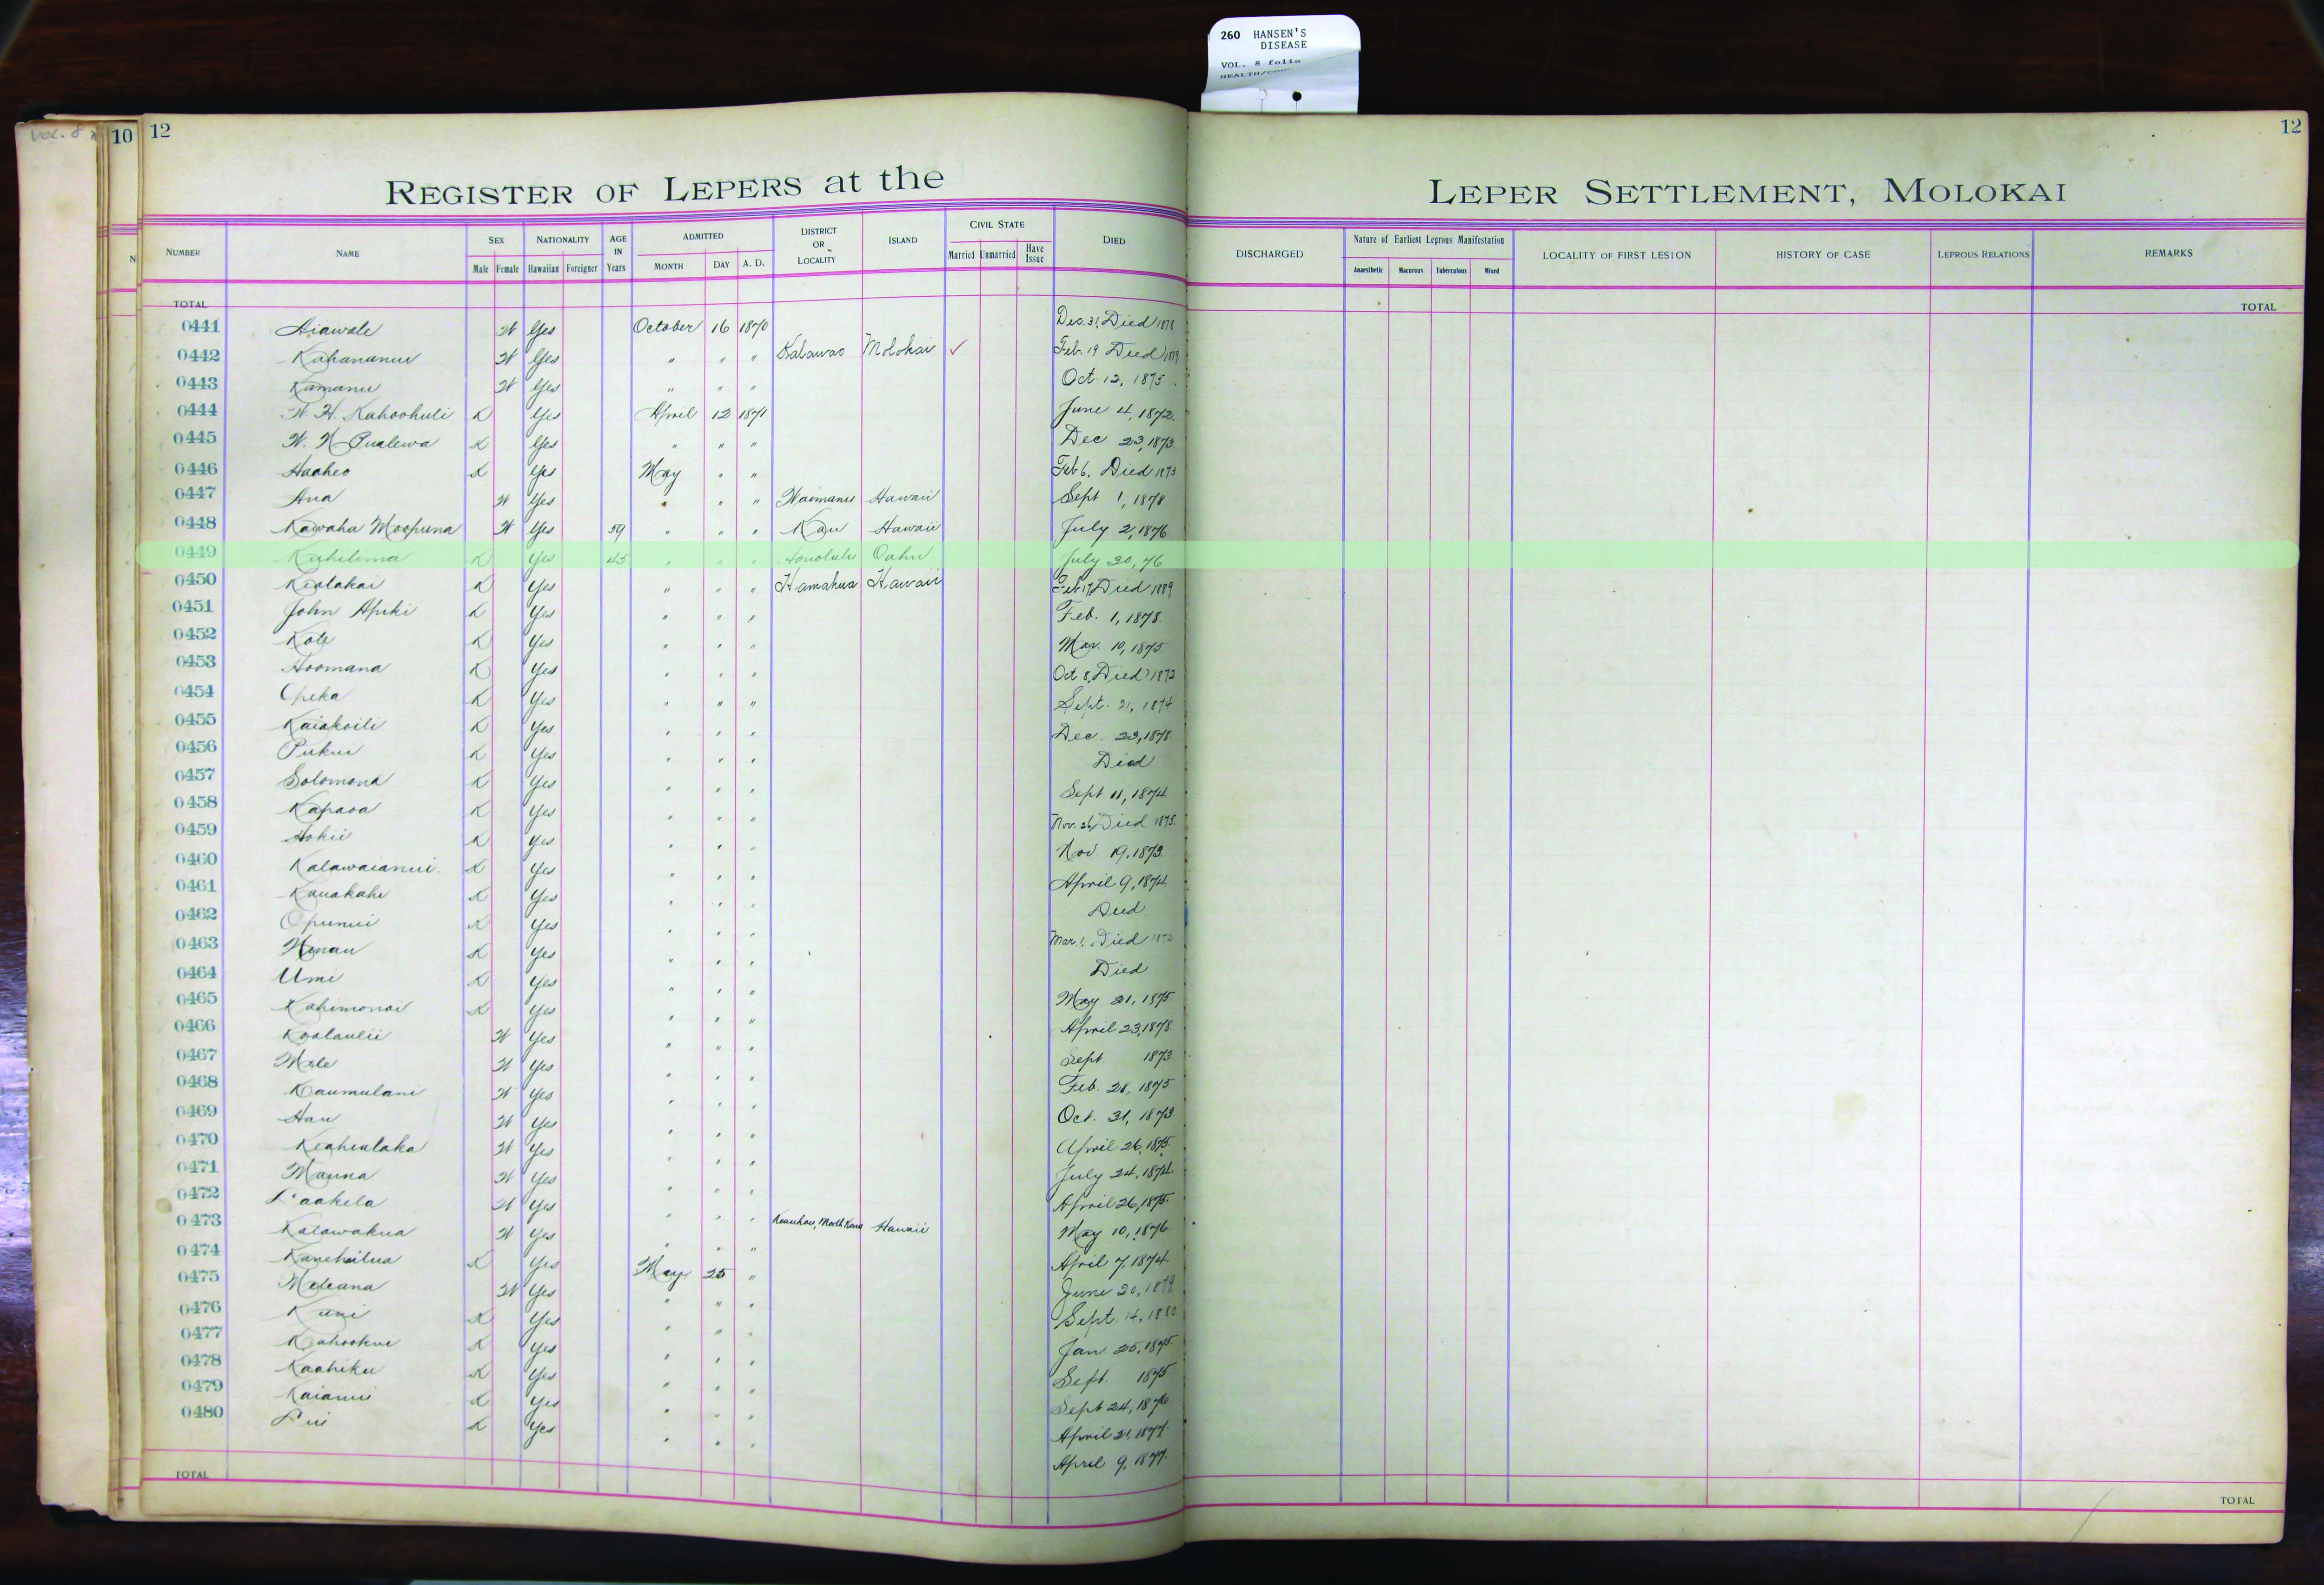 260 HANSEN'S
DISEASE
VOL. 8 folio
10 12
12
REGISTER OF LEPERS at the LEPER SETTLEMENT, MOLOKAI
NUMBER NAME SEX NATIONALITY AGE IN Years ADMITTED DISTRICT OR LOCALITY ISLAND CIVIL STATE DIED DISCHARGED Nature of Earliest Leprous Manifestation LOCALITY OF FIRST LESION HISTORY OF CASE LEPROUS RELATIONS REMARKS
Male Female Hawaiian Foreigner MONTH DAY A. D. Married Unmarried Have Issue Anaesthetic Macurous Tuberculous Mixed
TOTAL TOTAL
0441 Aiawale W Yes October 16 1870 Dec. 31, Died 1878
0442 Kahananui W Yes " " " Kalawao Molokai ✓ Feb. 19 Died 1879
0443 Kamanu W Yes " " " Oct. 12, 1875
0444 W. H. Kahoohuli K Yes April 12 1871 June 4, 1872
0445 W. N. Pualewa K Yes " " " Dec. 23, 1873
0446 Haaheo K Yes May " " Feb 6, Died 1873
0447 Ana W Yes " " " Waimanu Hawaii Sept 1, 1878
0448 Kawaha Moopuna W Yes 59 " " " Kau Hawaii July 2, 1876
0449 Kahilima K Yes 45 " " " Honolulu Oahu July 30, 76
0450 Kealakai K Yes " " " Hamakua Hawaii Feb 17, Died 1889
0451 John Apiki K Yes " " " Feb. 1, 1878
0452 Kole K Yes " " " Mar. 10, 1875
0453 Hoomana K Yes " " " Oct 8, Died 1872
0454 Opeka K Yes " " " Sept. 21, 1874
0455 Kaiakoili K Yes " " " Dec. 23, 1878
0456 Pukui K Yes " " " Died
0457 Solomona K Yes " " " Sept 11, 1874
0458 Kapaoa K Yes " " " Nov. 26, Died 1875
0459 Hokii K Yes " " " Nov. 19, 1873
0460 Kalawaianui K Yes " " " April 9, 1874
0461 Kauakahi K Yes " " " Died
0462 Opunui K Yes " " " Mar. 1, Died 1872
0463 Hinau K Yes " " " Died
0464 Umi K Yes " " " May 21, 1875
0465 Kahimonoi K Yes " " " April 23, 1878
0466 Koolaulii W Yes " " " Sept 1873
0467 Mele W Yes " " " Feb. 28, 1875
0468 Kaumulani W Yes " " " Oct. 31, 1873
0469 Hau W Yes " " " April 26, 1875
0470 Keahialaka W Yes " " " July 24, 1874
0471 Mauna W Yes " " " April 26, 1875
0472 Laakela W Yes " " " Keauhou, North Kona Hawaii May 10, 1876
0473 Kalawakua W Yes " " " April 7, 1874
0474 Kanehailua K Yes May 25 " June 20, 1879
0475 Meleana W Yes " " " Sept. 14, 1880
0476 Kuni K Yes " " " Jan. 25, 1875
0477 Kahookui K Yes " " " Sept. 1875
0478 Kaahiku K Yes " " " Sept 24, 1876
0479 Kaianui K Yes " " " April 21, 1877
0480 Lui K Yes " " " April 9, 1877
TOTAL TOTAL